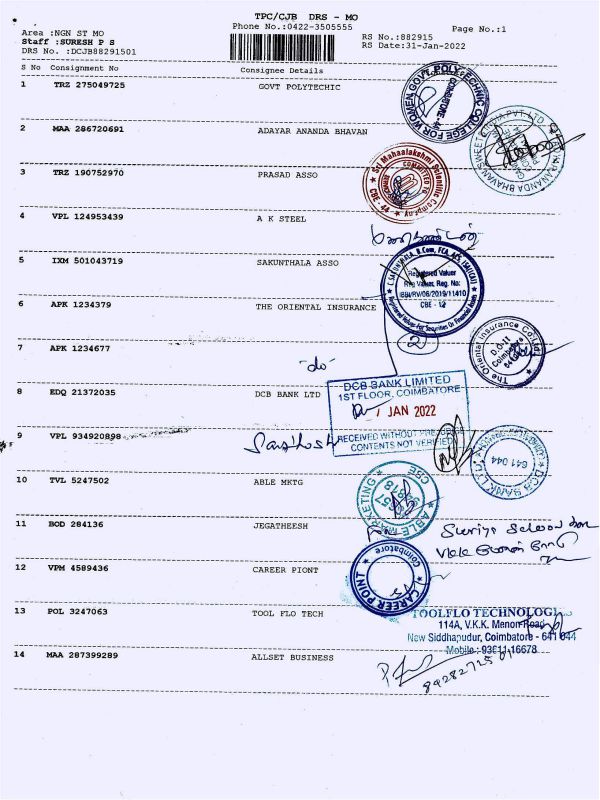 TPC/CJB DRS - MO
Phone No.:0422-3505555
Page No.:1
Area :NGN ST MO
Staff :SURESH P S
DRS No. :DCJB88291501
RS No.:882915
RS Date:31-Jan-2022
S No Consignment No Consignee Details
1 TRZ 275049725 GOVT POLYTECHIC
GOVT. POLYTECHNIC COLLEGE FOR WOMEN
COIMBATORE-44
2 MAA 286720691 ADAYAR ANANDA BHAVAN
3 TRZ 190752970 PRASAD ASSO
Sri Mahaalakshmi Scientific Company
COMMITTED TO
CBE - 44
4 VPL 124953439 A K STEEL
5 IXM 501043719 SAKUNTHALA ASSO
Registered Valuer
Reg Valuer, Reg. No:
IBBI/RV/06/2019/11410
CBE - 12
Registered Valuer For Securities Or Financial Assets
6 APK 1234379 THE ORIENTAL INSURANCE
2
7 APK 1234677
-do-
The Oriental Insurance Co. Ltd.
D.O-II
Coimbatore
8 EDQ 21372035 DCB BANK LTD
DCB BANK LIMITED
1ST FLOOR, COIMBATORE
1 JAN 2022
RECEIVED WITHOUT PREJUDICE
CONTENTS NOT VERIFIED
9 VPL 934920898
Santhosh
DCB BANK LTD.
641 044
10 TVL 5247502 ABLE MKTG
ABLE MARKETING
CBE
11 BOD 284136 JEGATHEESH
12 VPM 4589436 CAREER PIONT
CAREER POINT
Coimbatore
13 POL 3247063 TOOL FLO TECH
TOOLFLO TECHNOLOGI
114A, V.K.K. Menon Road
New Siddhapudur, Coimbatore - 641 044
Mobile : 93611 16678
14 MAA 287399289 ALLSET BUSINESS